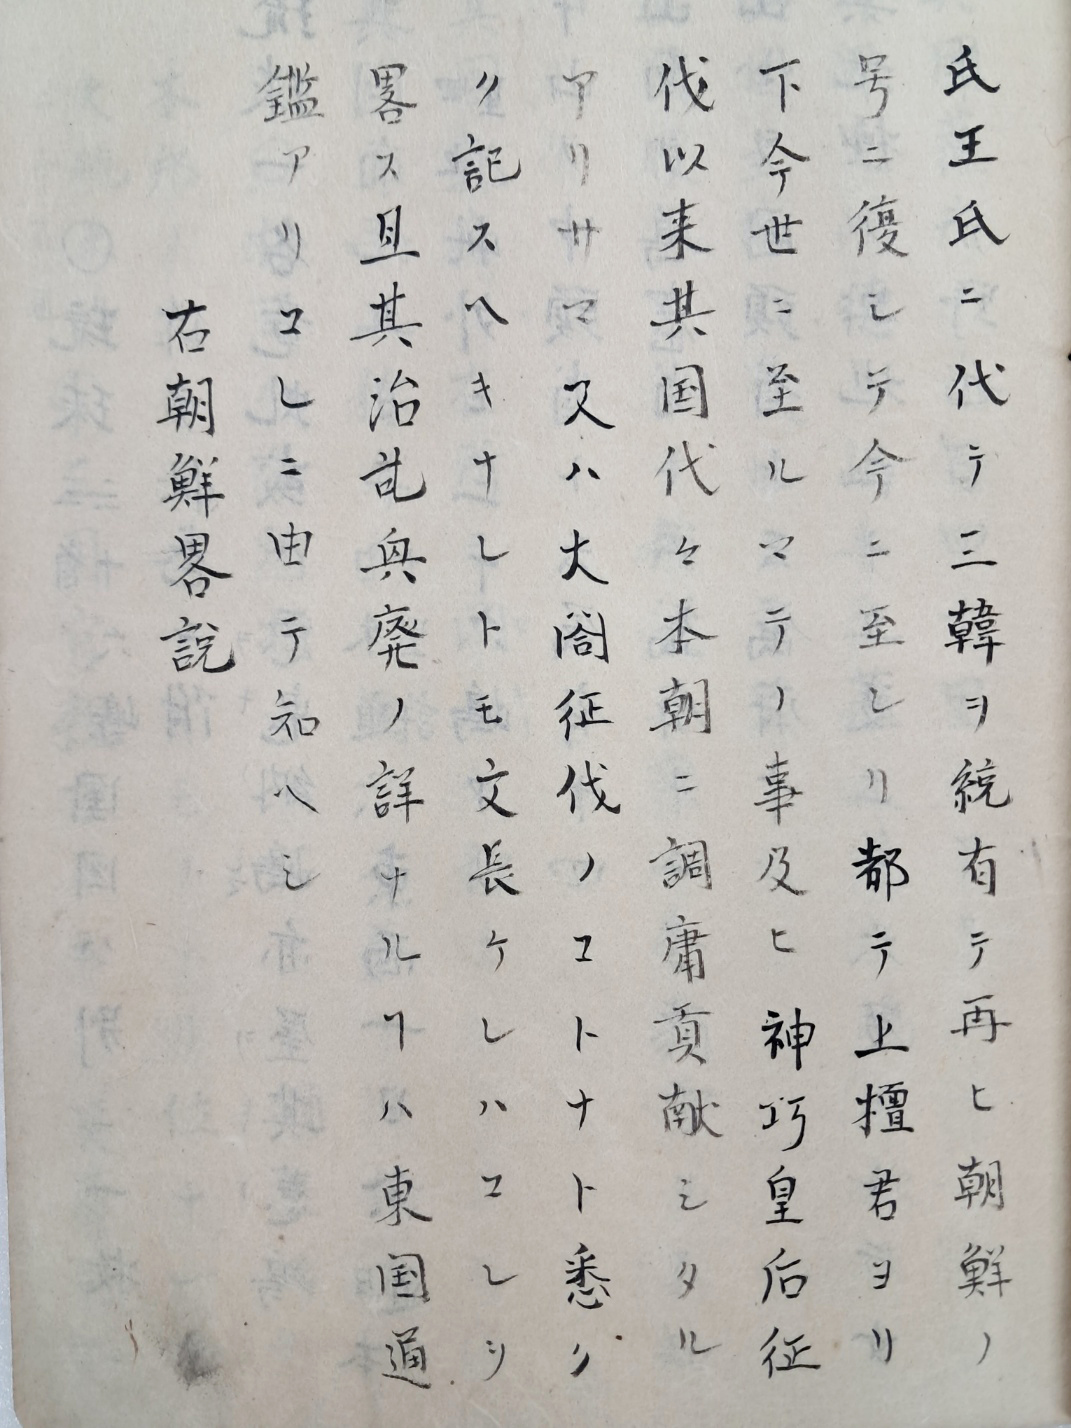 氏王氏ニ代テ三韓ヲ統有テ再ヒ朝鮮ノ
号ニ復シテ今ニ至レリ都テ上檀君ヨリ
下今世ニ至ルマテノ事及ヒ神巧皇后征
伐以来其国代々本朝ニ調庸貢献シタル
アリサマ又ハ大閤征伐ノコトナト悉ク
ク記スヘキナレトモ文長ケレハコレヲ
畧ス且其治乱興廃ノ詳ナルヿハ東国通
鑑アリコレニ由テ知ヘシ
右朝鮮畧説